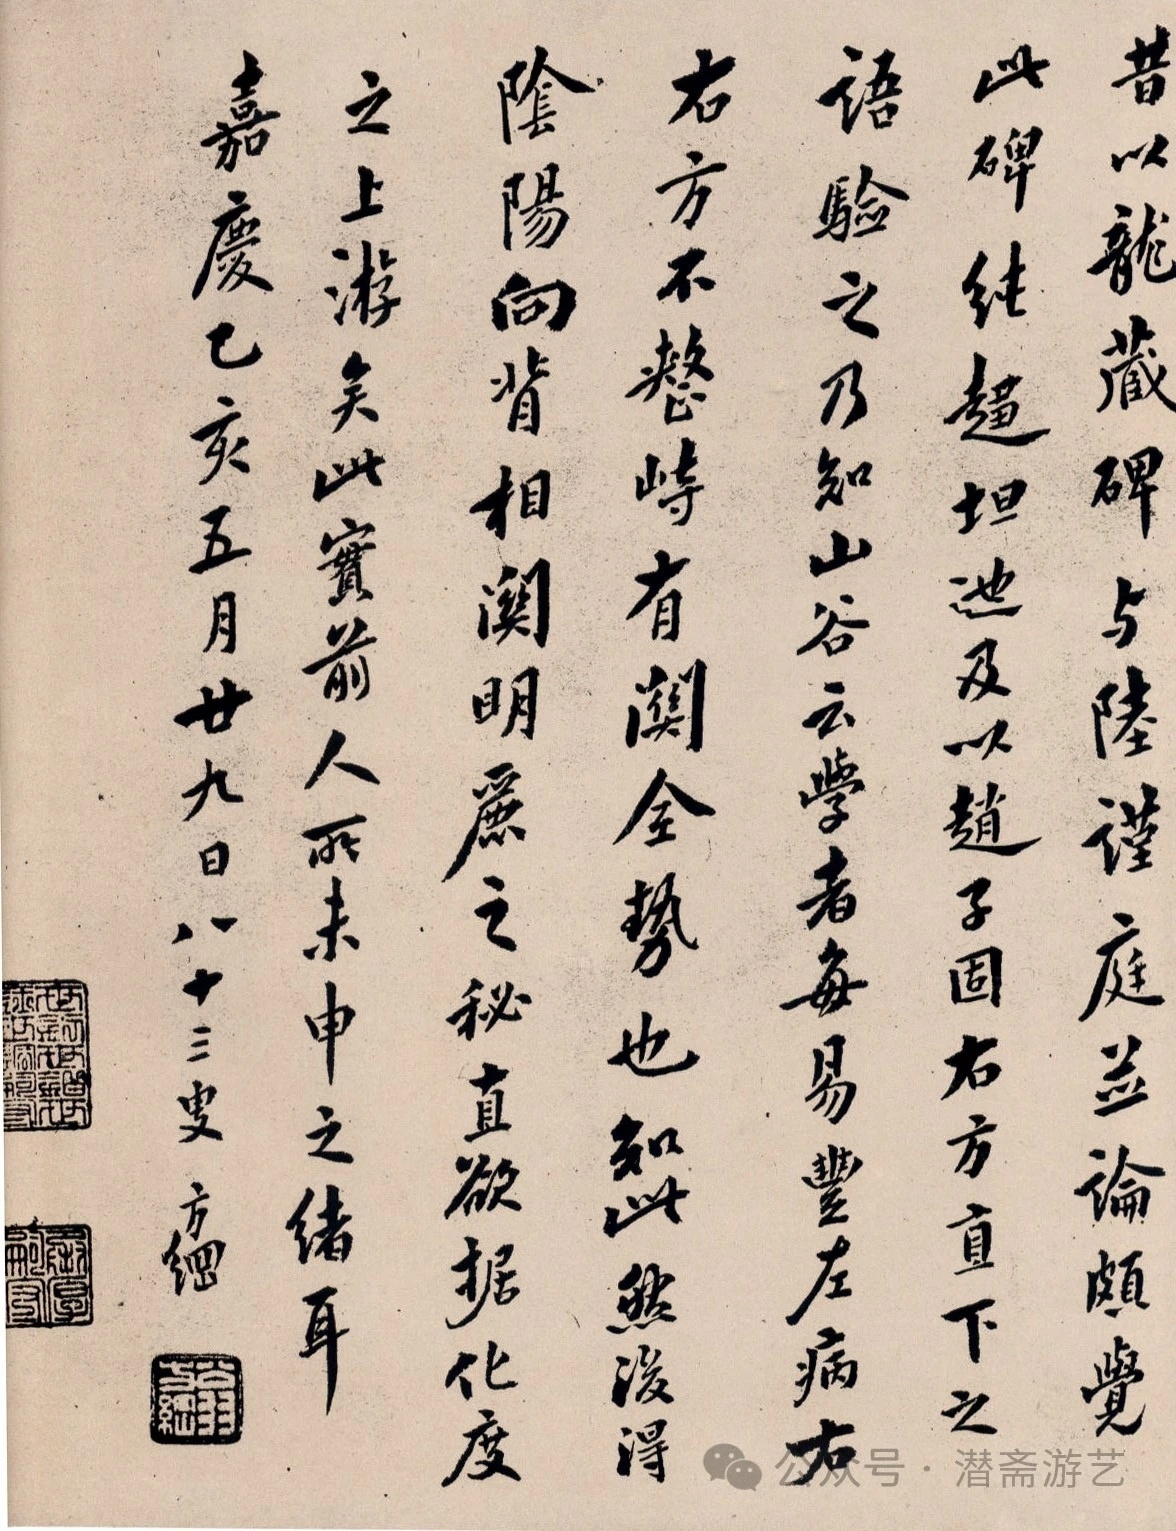 昔以龍藏碑与陸謹庭並論頗覺
此碑純趋坦迤及以趙子固右方直下之
語驗之乃知山谷云學者每易豐左病右
右方不整峙有闗全勢也如此然後得
陰陽向背相闗明麗之秘直欲据化度
之上游矣此實前人所未申之緒耳
嘉慶乙亥五月廿九日八十三叟 方綱
翁方綱
公众号·潜斋游艺